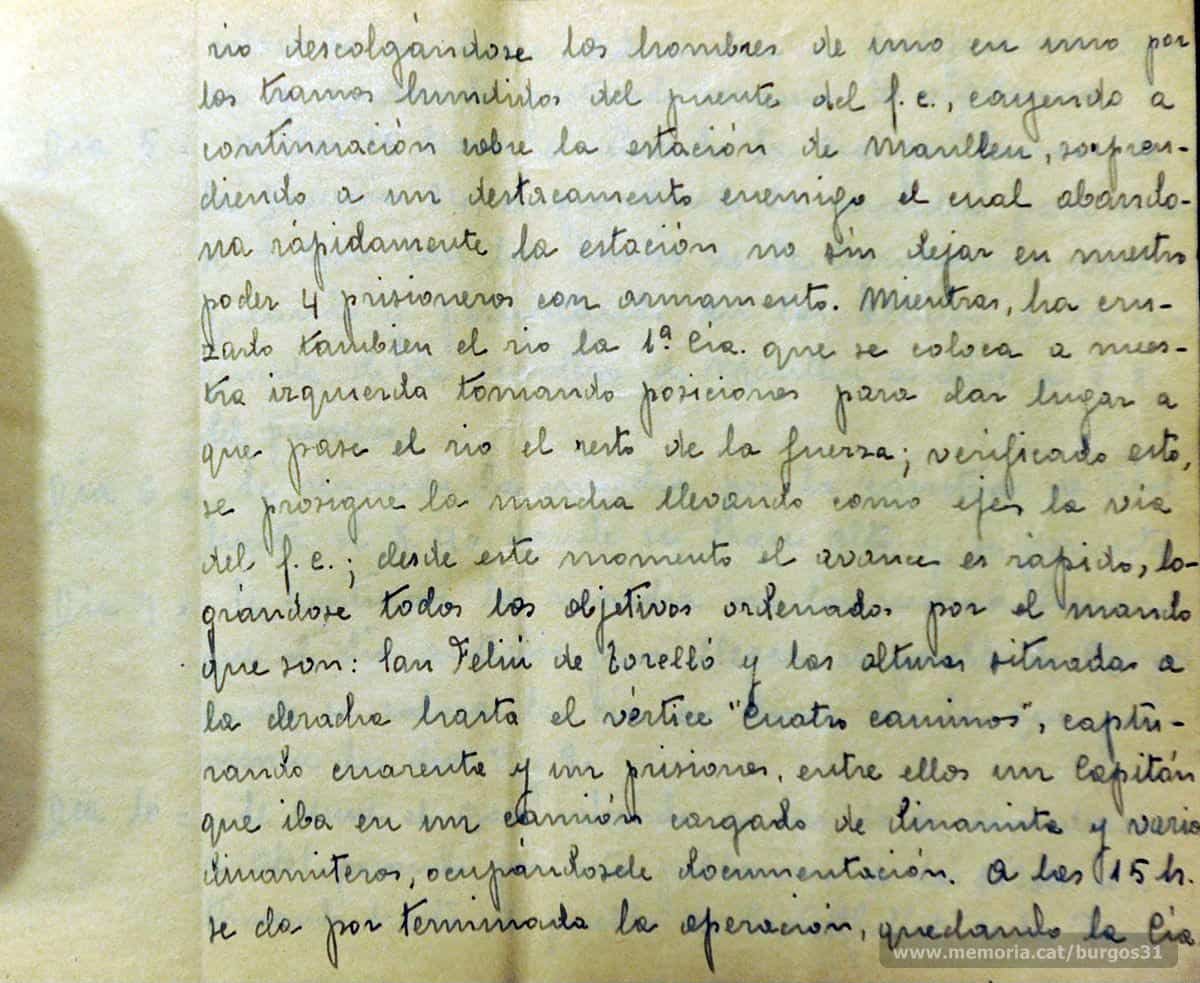 rio descolgándose los hombres de uno en uno por
los tramos hundidos del puente del f.c., cayendo a
continuación sobre la estación de Manlleu, sorpren-
diendo a un destacamento enemigo el cual abando-
na rápidamente la estación no sin dejar en nuestro
poder 4 prisioneros con armamento. Mientras, ha cru-
zado tambien el rio la 1ª Cia. que se coloca a nues-
tra izquierda tomando posiciones para dar lugar a
que pase el rio el resto de la fuerza; verificado esto,
se prosigue la marcha llevando como ejes la via
del f.c.; desde este momento el avance es rápido, lo-
grándose todos los objetivos ordenados por el mando
que son: San Feliú de Torelló y las alturas situadas a
la derecha hasta el vértice "Cuatro caminos", captu-
rando cuarenta y un prisiones, entre ellos un Capitán
que iba en un camión cargado de dinamita y vario
dinamiteros, ocupándosele documentación. A las 15 h.
se da por terminada la operación, quedando la Cia
www.memoria.cat/burgos31